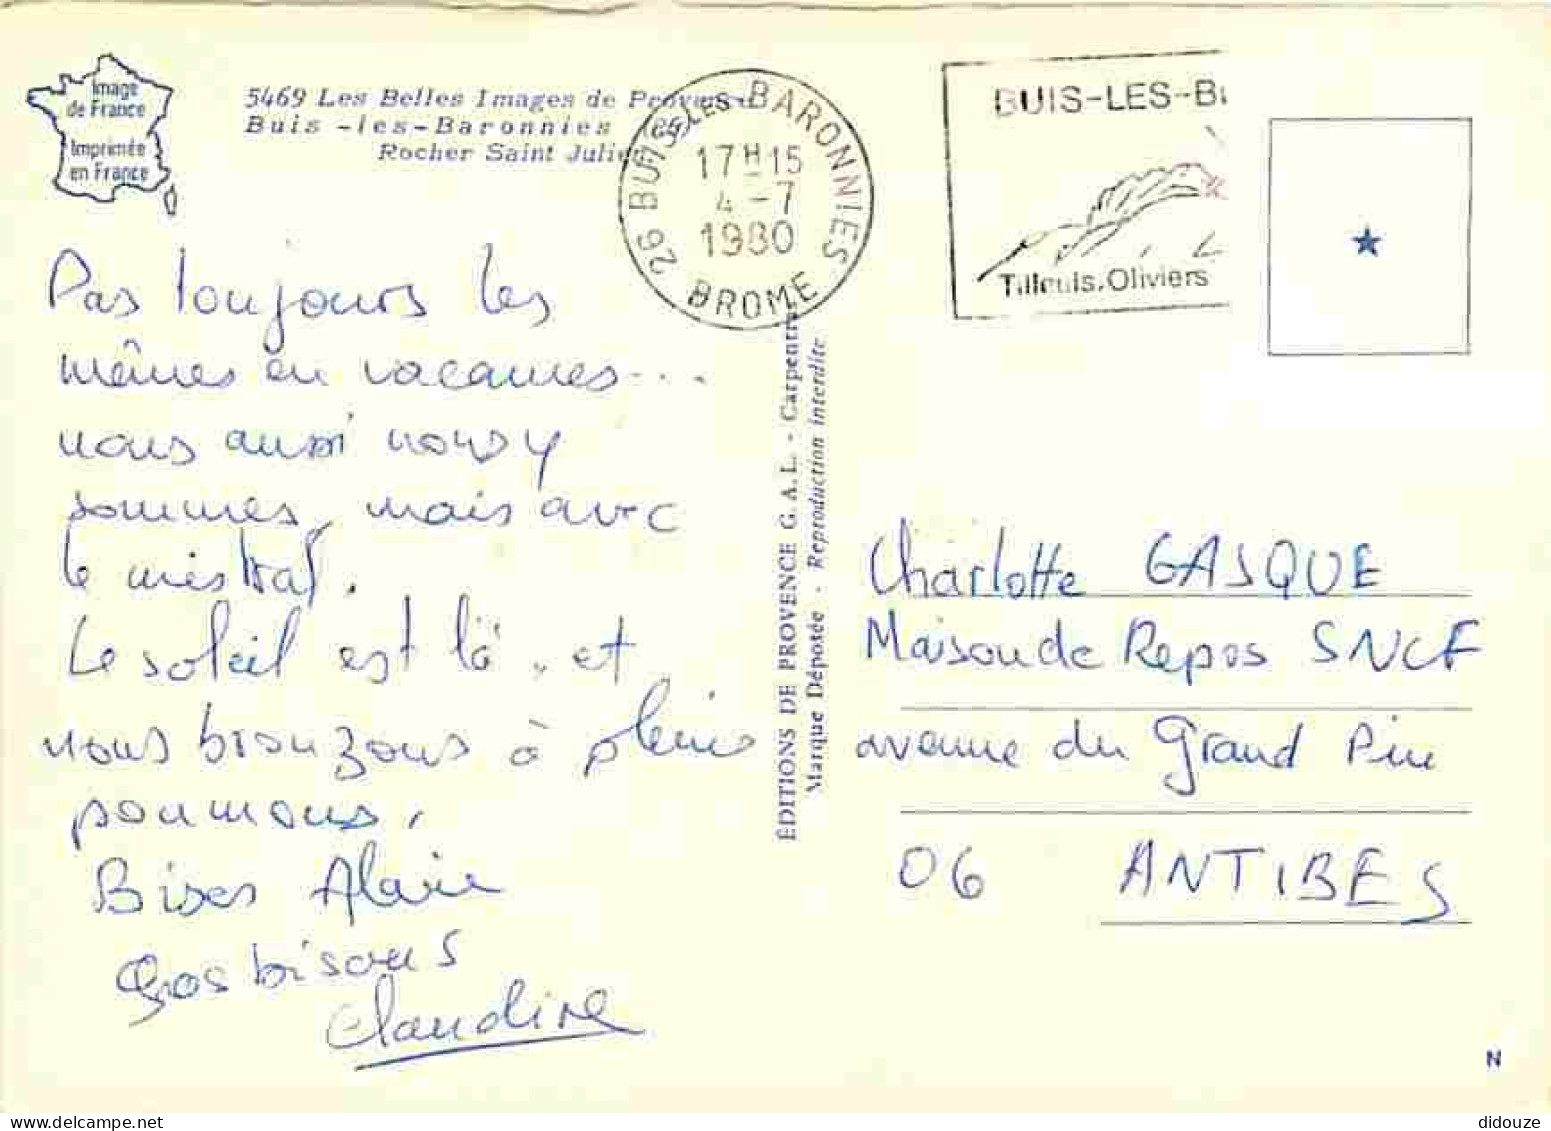 Image
de France
Imprimée
en France
5469 Les Belles Images de Provence
Buis-les-Baronnies
Rocher Saint Julien
26 BUIS-LES-BARONNIES
17H15
4-7
1980
DROME
BUIS-LES-B
Tilleuls.Oliviers
Pas toujours les
mêmes en vacances...
nous aussi nous y
sommes, mais avec
le mistral.
Le soleil est là, et
nous bronzons à pleins
poumons.
Bises Alain
Gros bisous
Claudine
ÉDITIONS DE PROVENCE G.A.L. - Carpentras
Marque Déposée - Reproduction interdite
Charlotte GASQUE
Maison de Repos SNCF
avenue du Grand Pin
06 ANTIBES
N
didouze